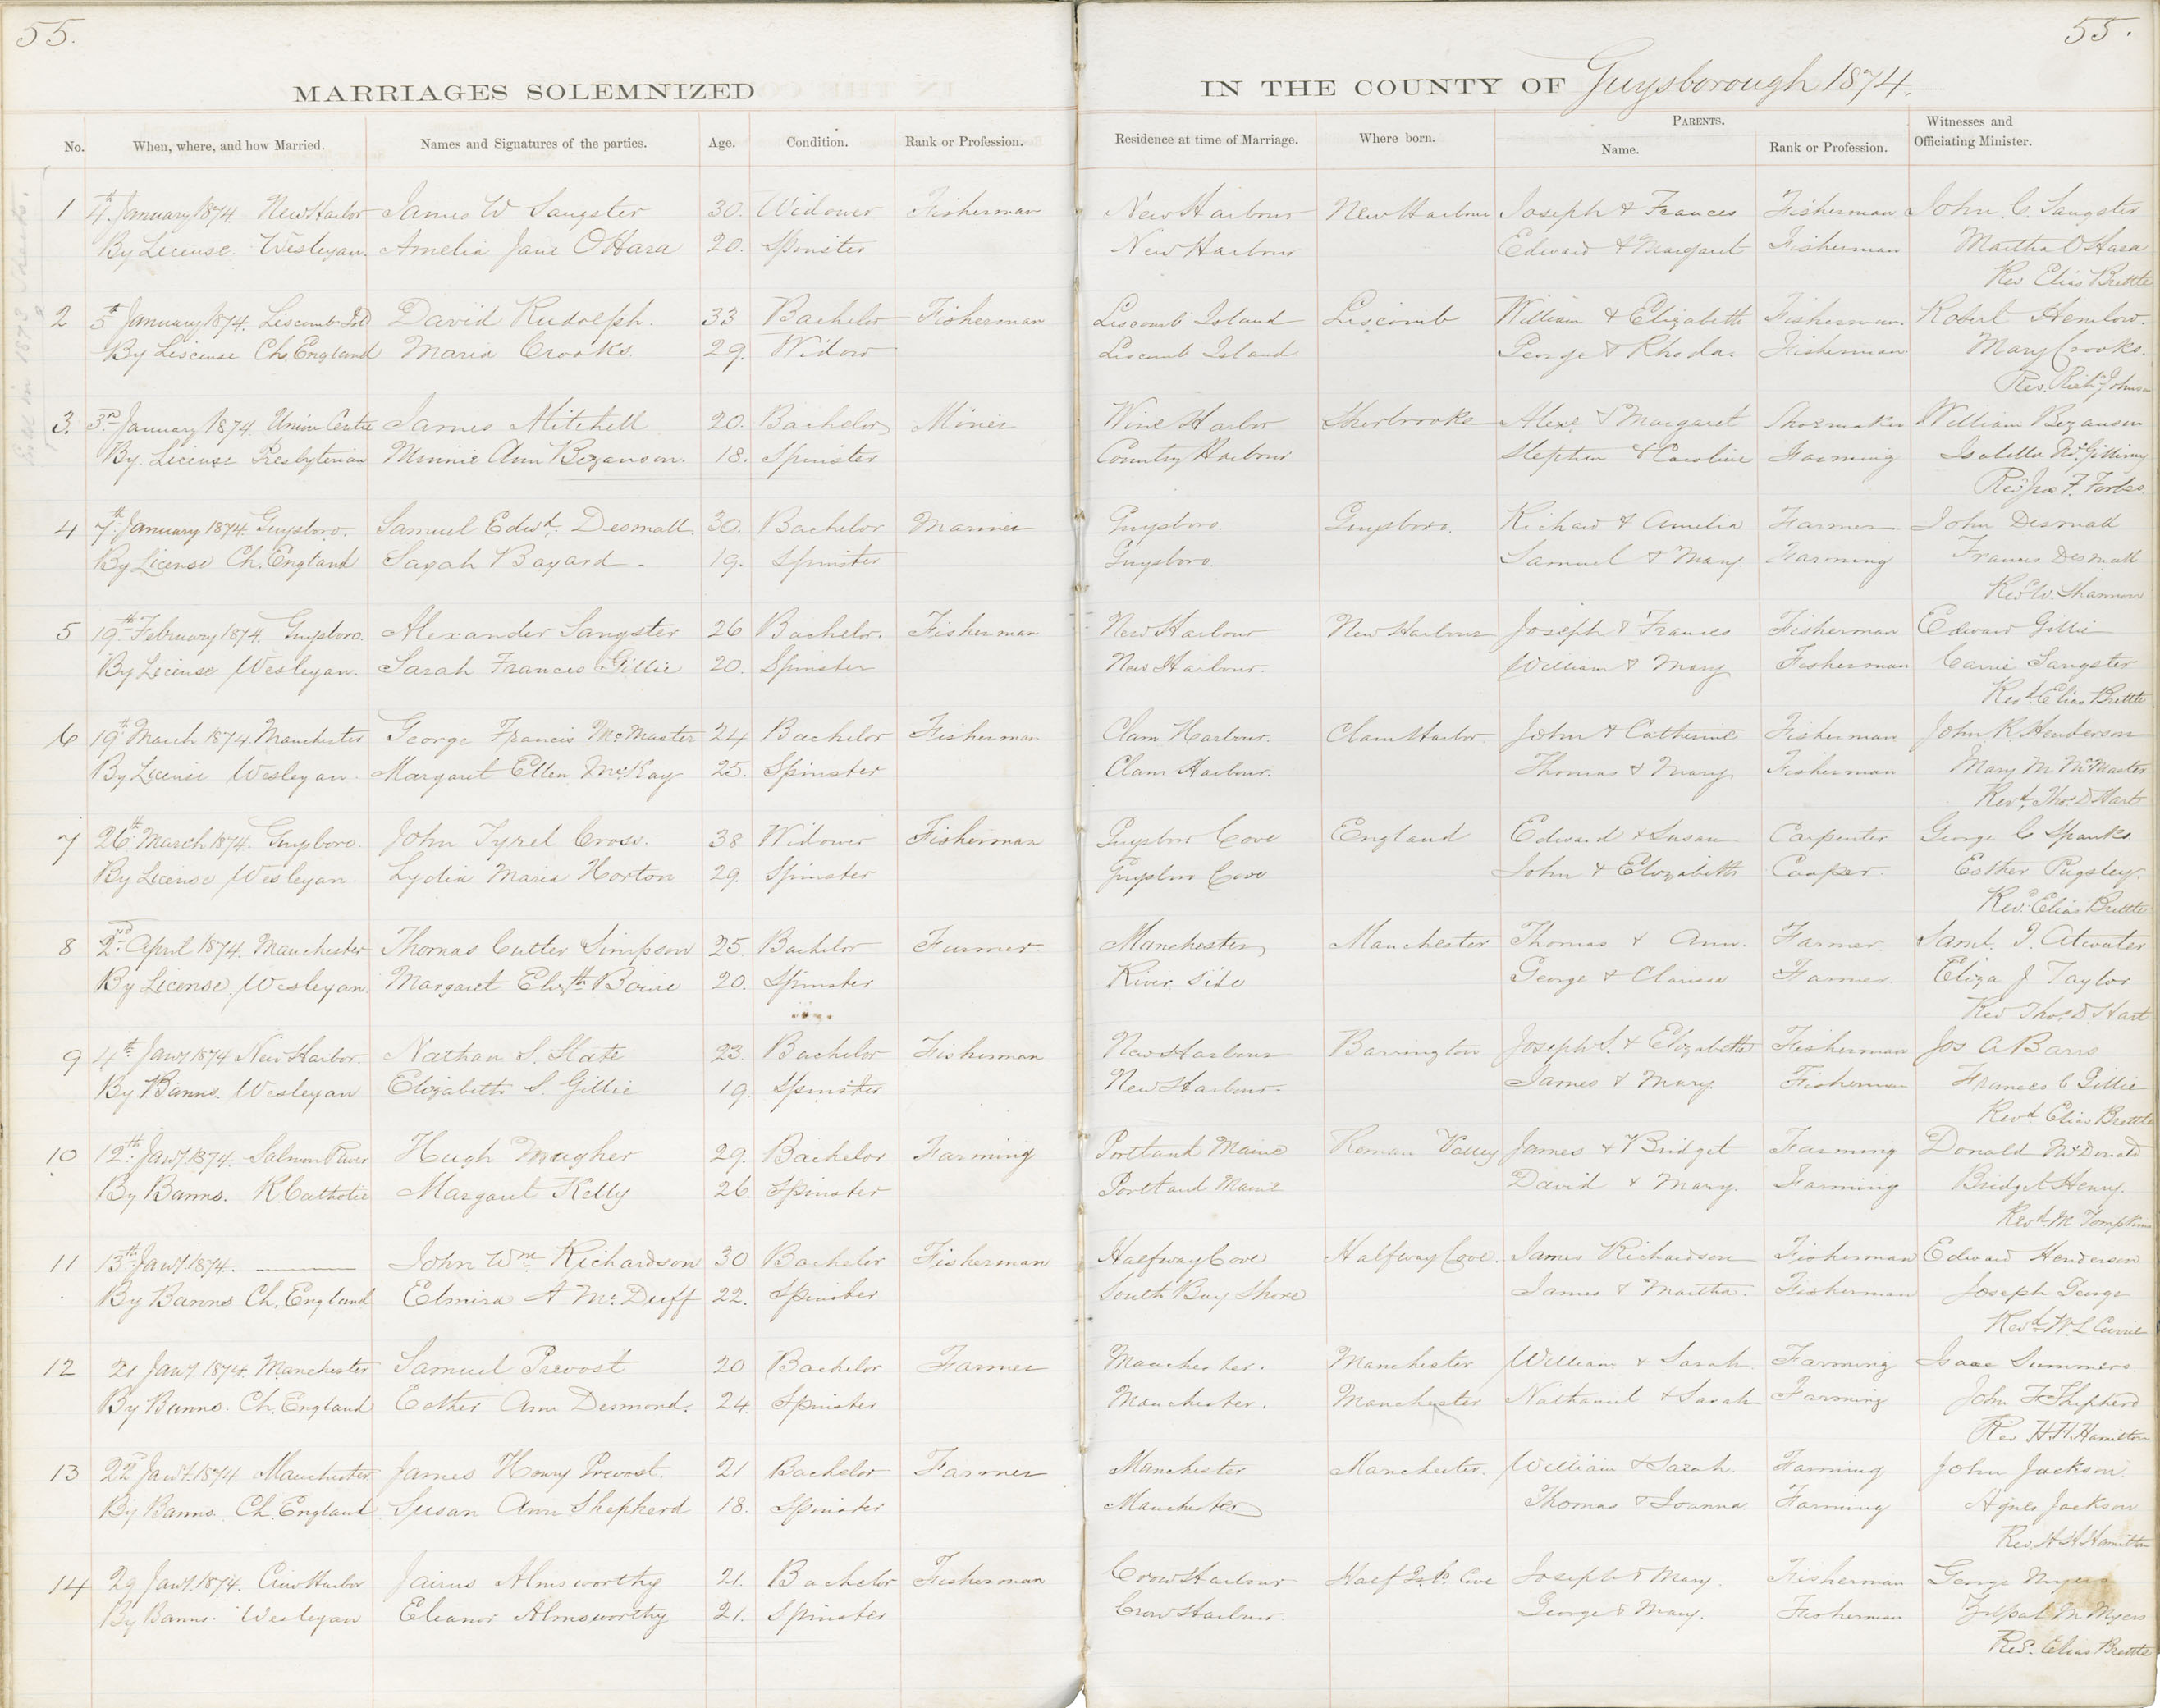 55.
55.
MARRIAGES SOLEMNIZED
IN THE COUNTY OF Guysborough 1874.
No. When, where, and how Married. Names and Signatures of the parties. Age. Condition. Rank or Profession. Residence at time of Marriage. Where born. PARENTS. Name. Rank or Profession. Witnesses and Officiating Minister.
1 4th January 1874 New Harbor James W Sangster 30. Widower Fisherman New Harbour New Harbour Joseph & Frances Fisherman John C. Sangster
By License. Wesleyan. Amelia Jane O'Hara 20. Spinster New Harbour Edward & Margaret Fisherman Martha O'Hara
Rev Elias Brettle
2 5th January 1874. Liscomb Isld David Rudolph. 33 Bachelor Fisherman Liscomb Island Liscomb William & Elizabeth Fisherman. Robert Hemlow.
By Liscense Ch. England Maria Crooks. 29. Widow Liscomb Island George & Rhoda. Fisherman Mary Crooks.
Rev. Richd Johnson
3. 3rd January 1874 Union Centre James Mitchell 20. Bachelor Miner Wine Harbor Sherbrooke Alexr & Margaret Shoemaker William Bezanson
By License Presbyterian Minnie Ann Bezanson. 18. Spinster Country Harbour Stephen & Caroline Farming Isabella
Revd Jno F. Forbes
4 7th January 1874 Guysboro. Samuel Edwd. Desmall. 30. Bachelor Mariner Guysboro. Guysboro. Richard & Amelia Farmer John Desmall
By License Ch. England Sarah Bayard 19. Spinster Guysboro. Samuel & Mary Farming Frances Desmall
Rev W. Shannon
5 19th February 1874. Guysboro. Alexander Sangster 26 Bachelor. Fisherman New Harbour New Harbour Joseph & Frances Fisherman Edward Gillie
By License Wesleyan. Sarah Frances Gillie 20. Spinster New Harbour. William & Mary Fisherman Carrie Sangster
Revd. Elias Brettle
6 19th March 1874 Manchester George Francis McMaster 24 Bachelor Fisherman Clam Harbour. Clam Harbor. John & Catherine Fisherman John R. Henderson
By License Wesleyan. Margaret Ellen McKay 25. Spinster Clam Harbour. Thomas & Mary Fisherman Mary M McMaster
Revd. Thos D Hart
7 26th March 1874. Guysboro. John Tyrel Cross. 38 Widower Fisherman Guysboro Cove England Edward & Susan Carpenter George C Spanks
By License Wesleyan Lydia Maria Horton 29. Spinster Guysboro Cove John & Elizabeth Cooper. Esther Pugsley.
Revd. Elias Brettle
8 2nd April 1874. Manchester Thomas Cutler Simpson 25. Bachelor Farmer Manchester Manchester Thomas & Ann. Farmer. Saml. J. Atwater
By License. Wesleyan Margaret Elizth Boivie 20. Spinster River Side George & Clarissa Farmer. Eliza J Taylor
Rev Thos D. Hart
9 4th Jany 1874 New Harbor. Nathan S. Slate 23. Bachelor Fisherman New Harbour Barrington Joseph S. & Elizabeth Fisherman Jos A Barss
By Banns. Wesleyan Elizabeth S. Gillie 19. Spinster New Harbour. James & Mary. Fisherman Frances C Gillie
Revd Elias Brettle
10 12th Jany 1874. Salmon River Hugh Magher 29. Bachelor Farming Portland Maine Roman Valley James & Bridget Farming Donald McDonald
By Banns. R. Catholic Margaret Kelly 26. Spinster Portland Maine David & Mary. Farming Bridget Henry.
Revd. M Tompkins
11 13th Jany 1874. John Wm. Richardson 30 Bachelor Fisherman Halfway Cove Halfway Cove. James Richardson Fisherman Edward Henderson
By Banns Ch. England Elmira A McDuff 22. Spinster South Bay Shore James & Martha. Fisherman Joseph George
Revd W. L Currie
12 21 Jany. 1874. Manchester Samuel Prevost 20 Bachelor Farmer Manchester. Manchester William & Sarah. Farming Isaac Summers.
By Banns. Ch. England Esther Ann Desmond. 24. Spinster Manchester. Manchester Nathaniel & Sarah Farming John F Shepherd
Rev H. H. Hamilton
13 22d Jany. 1874. Manchester James Henry Prevost. 21 Bachelor Farmer Manchester Manchester. William & Sarah. Farming John Jackson.
By Banns. Ch. England Susan Ann Shepherd 18. Spinster Manchester Thomas & Joanna. Farming Agnes Jackson
Rev. H H Hamilton
14 29 Jany. 1874. Crow Harbor Jairus Almsworthy 21. Bachelor Fisherman Crow Harbour Joseph & Mary. Fisherman George Myers
By Banns. Wesleyan Eleanor Almsworthy 21. Spinster Crow Harbour. George & Mary. Fisherman Zilpah M Myers
Revd. Elias Brettle